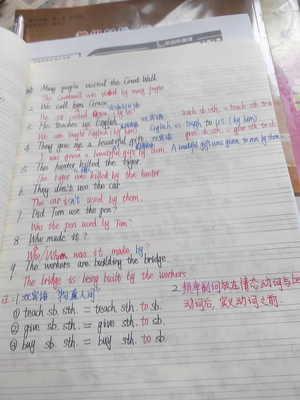 Many people visited the Great Wall.
The Greatwall was visited by many people.
2. We call him Green
He is called Green by us.
3. He teaches us English 双宾语 teach sb. sth. = teach sth. to sb.
We are taught English (by him) English is taught to us (by him)
4. They give me a beautiful gift. 双宾语 give sb. sth. = give sth to sb.
I was given a beautiful gift by them. A beautiful gift was given to me by them
5. The hunter killed the tiger.
The tiger was killed by the hunter.
6. They don't use the car
The car isn't used by them.
7. Did Tom use the pen?
Was the pen used by Tom?
8. Who made it?
Who/Whom was it made by
9. The workers are building the bridge.
The bridge is being built by the workers
注: 1. 双宾语 "物直人间" 2. 频率副词放在情态动词与be
① teach sb. sth. = teach sth. to sb. 动词后, 实义动词之前.
② give sb. sth. = give sth. to sb.
③ buy sb. sth. = buy sth. to sb.